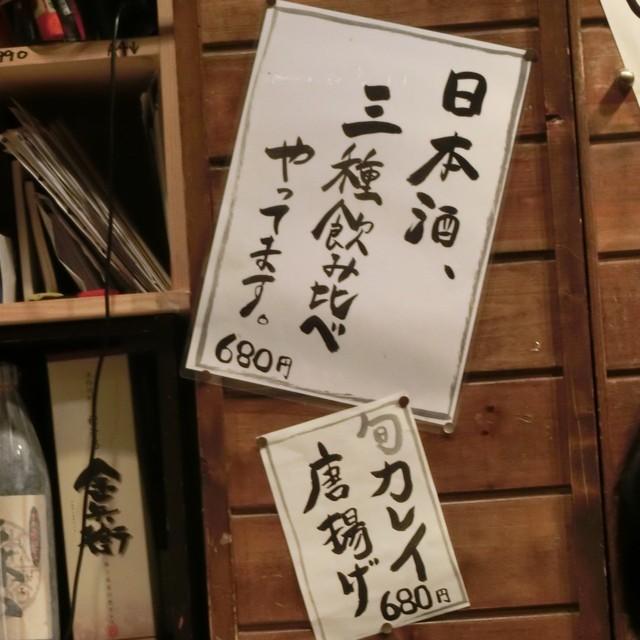 日本酒、
三種飲み比べ
やってます。
680円
旬カレイ
唐揚げ
680円